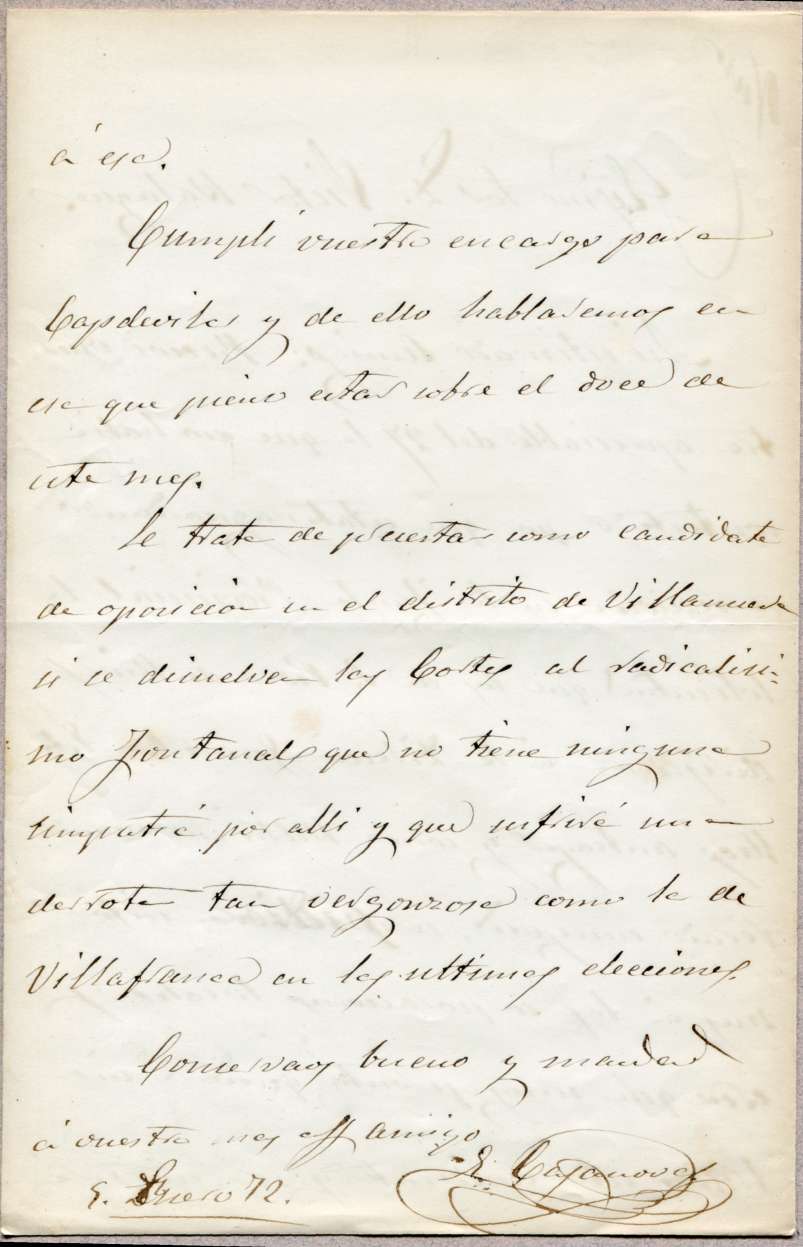 á esa.
Cumplí vuestro encargo para
Capdevila y de ello hablaremos en
esa que pienso estar sobre el doce de
este mes.
Se trata de presentar como candidato
de oposicion en el distrito de Villanueva
si se disuelven las Cortes al radicalisi-
mo Fontanals que no tiene ninguna
simpatia por alli y que sufrirá una
derrota tan vergonzosa como la de
Villafranca en las ultimas elecciones.
Conservaos bueno y mandad
á vuestro mas aff amigo
E. Casanovas
5. Enero 72.